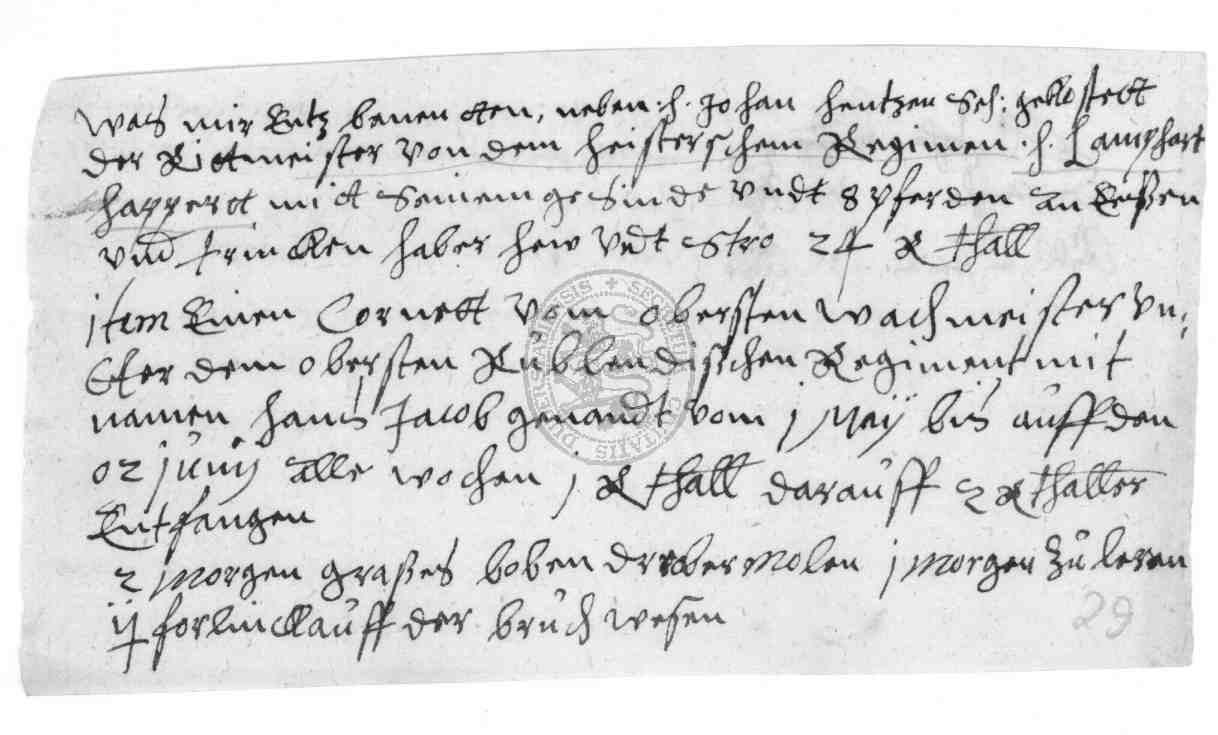 Was mir Entz benentten, neben h. Johan hentzen Sel: gekostett
der Rittmeister von dem heisterschem Regimen h. Lamphart
happertt mitt seinem gesinde vndt 8 pferden an Eeßen
vnd trincken haber hew vndt Stro 24 R thall
jtem Einen Cornett vom obersten wachmeister vn,
tter dem obersten Rublendischen Regiment mit
namen hans Jacob genandt vom j Maÿ bis auff den
02 junij alle wochen j R thall darauff 2 R thaller
Entfangen
2 morgen graßes boben der ober Molen j morgen zu leren
ij forlinck auff der bruch wesen
29
SECRETUM CIVITATIS